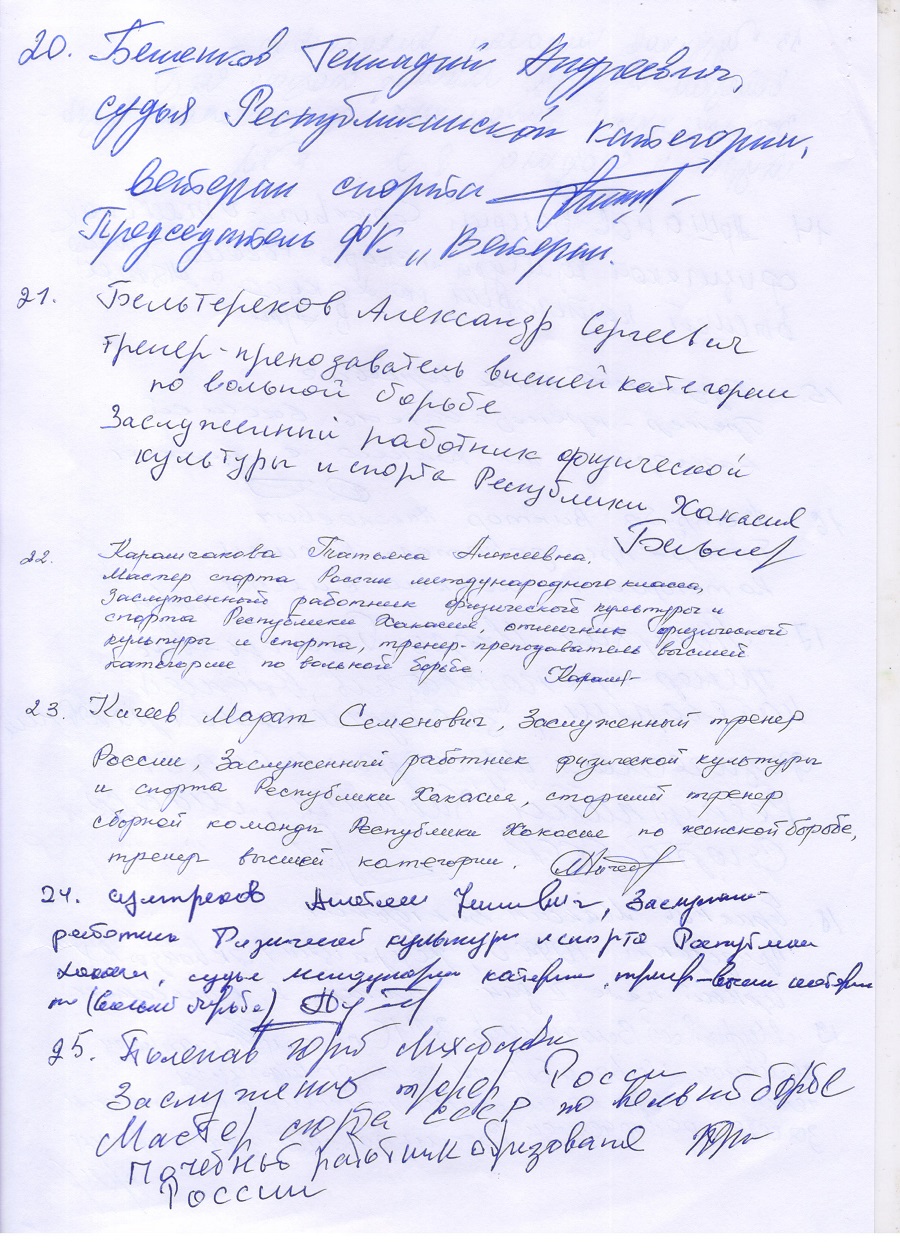 20. Бешенков Геннадий Андреевич,
судья Республиканской категории,
ветеран спорта
Председатель ФК „Ветеран
21. Бельтереков Александр Сергеевич
тренер-преподаватель высшей категории
по вольной борьбе
Заслуженный работник физической
культуры и спорта Республики Хакасия
22. Карамчакова Татьяна Алексеевна.
Мастер спорта России международного класса,
Заслуженный работник физической культуры и
спорта Республики Хакасия, отличник физической
культуры и спорта, тренер-преподаватель высшей
категории по вольной борьбе.
23. Кичеев Марат Семенович, Заслуженный тренер
России, Заслуженный работник физической культуры
и спорта Республики Хакасия, старший тренер
сборной команды Республики Хакасия по женской борьбе,
тренер высшей категории.
24. Заслужен
работник Физической культуры и спорта Республики
Хакасии, судья международ категории, тренер-высш категории
(вольной борьбе)
25. Юрий Михайлович
Заслуженый тренер России
Мастер спорта СССР по вольной борьбе
Почебный работник образования
России